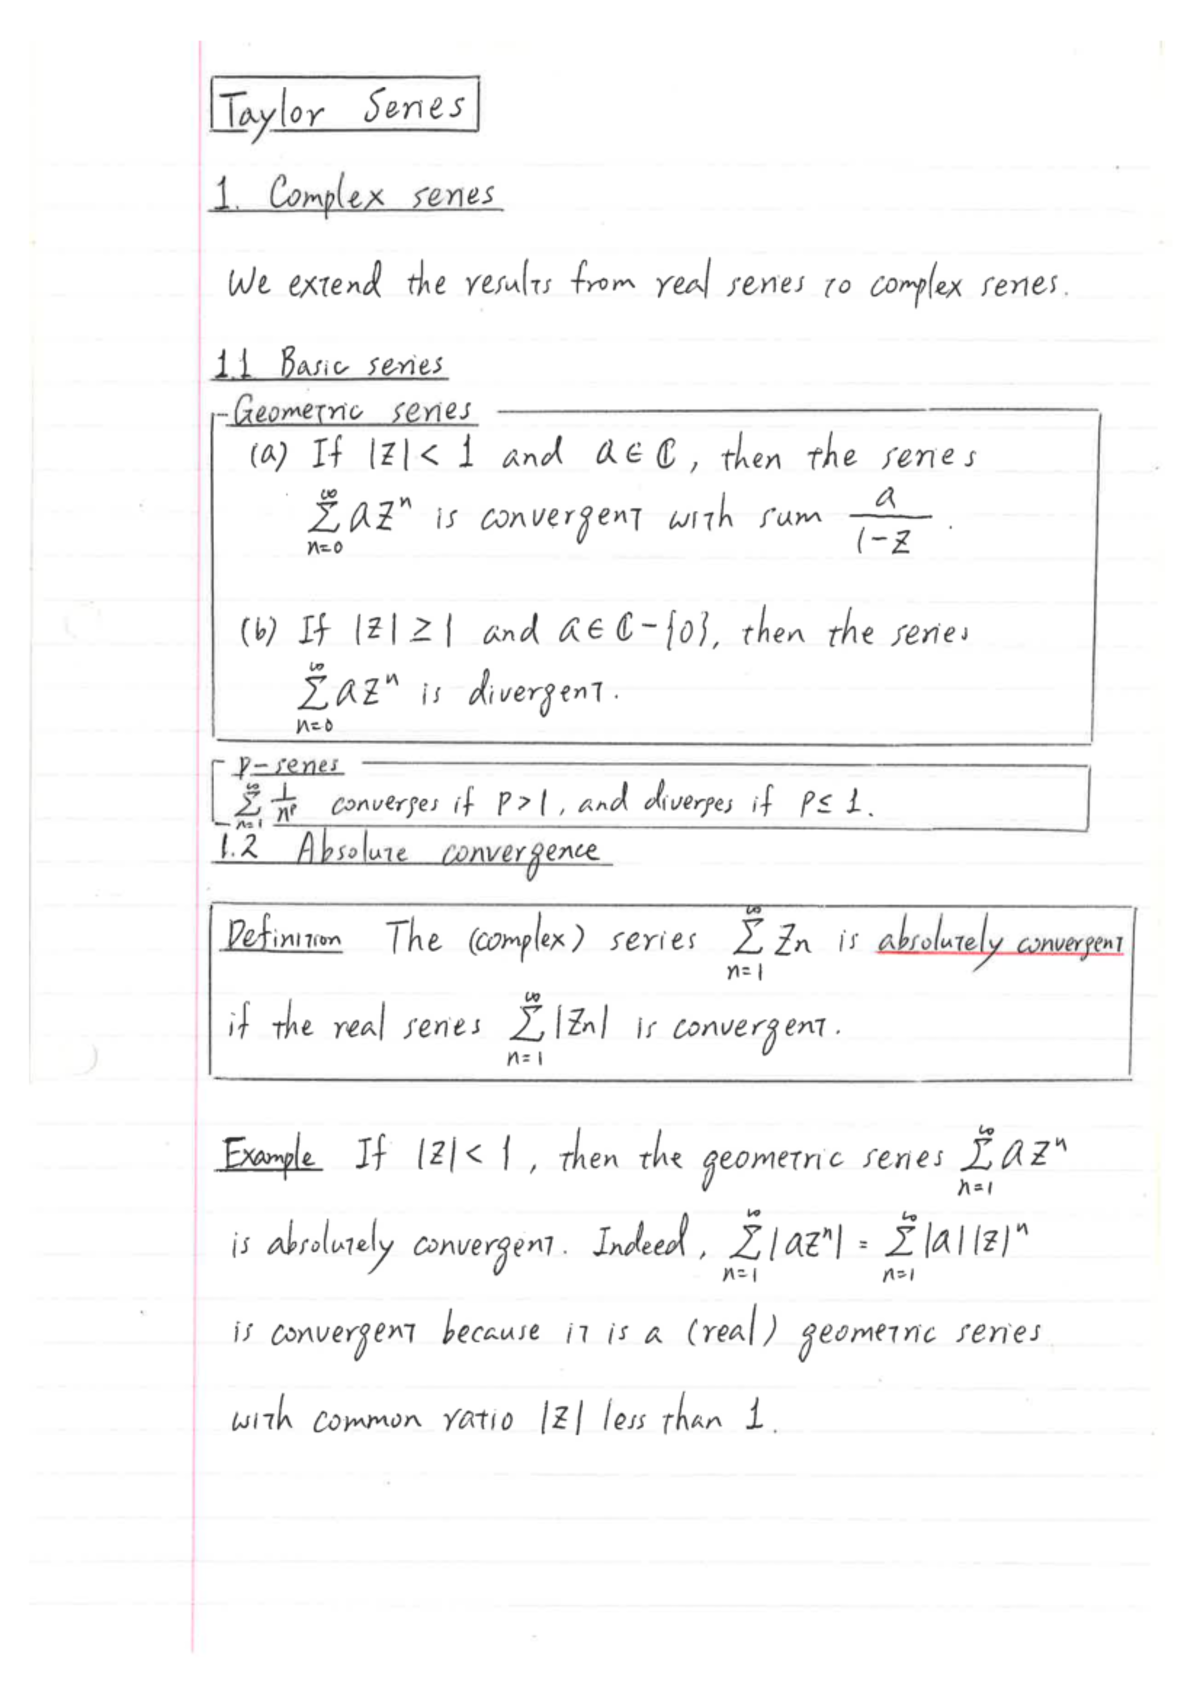 Taylor Series
1. Complex series
We extend the results from real series to complex series.
1.1 Basic series
Geometric series
(a) If |z| < 1 and a ∈ ℂ, then the series
∑_{n=0}^{∞} az^n is convergent with sum a/(1-z).
(b) If |z| ≥ 1 and a ∈ ℂ-{0}, then the series
∑_{n=0}^{∞} az^n is divergent.
p-series
∑_{n=1}^{∞} 1/n^p converges if p>1, and diverges if p≤1.
1.2 Absolute convergence
Definition The (complex) series ∑_{n=1}^{∞} z_n is absolutely convergent
if the real series ∑_{n=1}^{∞} |z_n| is convergent.
Example If |z| < 1, then the geometric series ∑_{n=1}^{∞} az^n
is absolutely convergent. Indeed, ∑_{n=1}^{∞} |az^n| = ∑_{n=1}^{∞} |a||z|^n
is convergent because it is a (real) geometric series
with common ratio |z| less than 1.